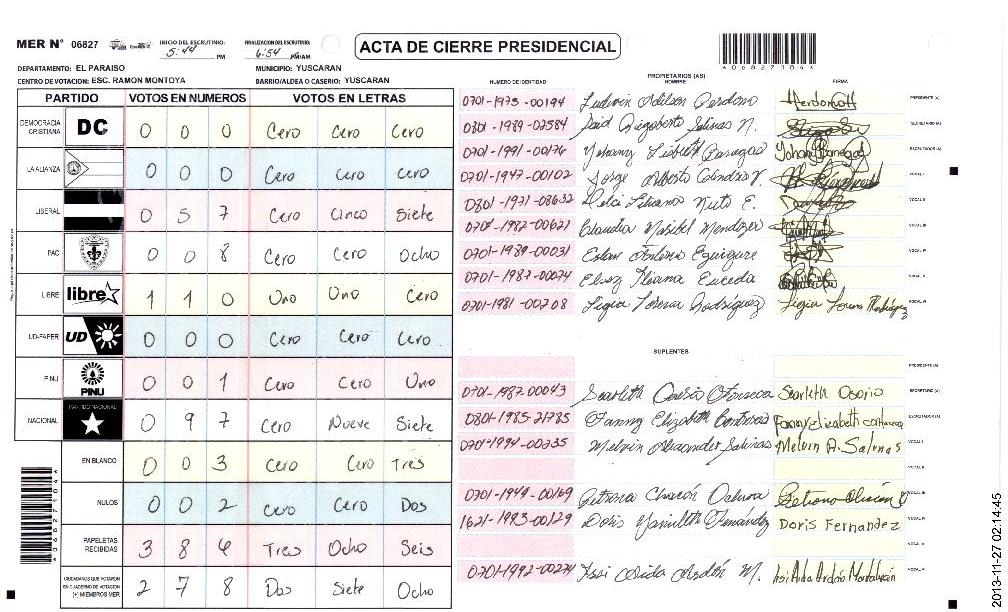 MER N° 06827
INICIO DEL ESCRUTINIO: 5:44 PM
FINALIZACION DEL ESCRUTINIO: 6:54 PM/AM
ACTA DE CIERRE PRESIDENCIAL
*06827104*
DEPARTAMENTO: EL PARAISO
MUNICIPIO: YUSCARAN
CENTRO DE VOTACION: ESC. RAMON MONTOYA
BARRIO/ALDEA O CASERIO: YUSCARAN
PARTIDO VOTOS EN NUMEROS VOTOS EN LETRAS
DEMOCRACIA CRISTIANA DC 0 0 0 Cero Cero Cero
LA ALIANZA 0 0 0 Cero Cero Cero
LIBERAL 0 5 7 Cero Cinco Siete
PAC 0 0 8 Cero Cero Ocho
LIBRE libre 1 1 0 Uno Uno Cero
UD-FAPER UD 0 0 0 Cero Cero Cero
PINU PINU 0 0 1 Cero Cero Uno
NACIONAL PARTIDO NACIONAL 0 9 7 Cero Nueve Siete
EN BLANCO 0 0 3 Cero Cero Tres
NULOS 0 0 2 Cero Cero Dos
PAPELETAS RECIBIDAS 3 8 6 Tres Ocho Seis
CIUDADANOS QUE VOTARON EN CUADERNO DE VOTACION (+) MIEMBROS MER 2 7 8 Dos Siete Ocho
*06827104*
PROPIETARIOS (AS)
NUMERO DE IDENTIDAD NOMBRE FIRMA
0701-1975-00194 PRESIDENTE (A)
0801-1989-02584 SECRETARIO (A)
0701-1991-00176 ESCRUTADOR (A)
0701-1947-00102 Jorge Alberto VOCAL I
0801-1971-08632 VOCAL II
0701-1982-00621 Claudia Maribel VOCAL III
0701-1989-00031 VOCAL IV
0701-1987-00074 VOCAL V
0701-1981-00208 Ligia Lorena Rodríguez Ligia Lorena Rodríguez VOCAL VI
SUPLENTES
PRESIDENTE (A)
0701-1987-00043 Scarleth Osorio Fonseca Scarleth Osorio SECRETARIO (A)
0801-1985-21785 Fanny Elizabeth Contreras Fanny Elizabeth Contreras ESCRUTADOR (A)
0701-1994-00235 Melvin Alexander Salinas Melvin A. Salinas VOCAL I
VOCAL II
0701-1949-00169 VOCAL III
1621-1993-00129 Doris Fernández Doris Fernandez VOCAL IV
VOCAL V
0701-1992-00274 VOCAL VI
2013-11-27 02:14:45